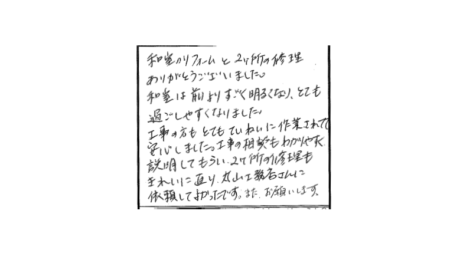 和室のリフォームと2ヶ所の修理
ありがとうございました。
和室は前よりすごく明るくなり、とても
過ごしやすくなりました。
工事の方もとてもていねいに作業されて
安心しました。工事の相談もわかりやすく
説明してもらい、2ヶ所の修理も
きれいに直り、丸山工務店さんに
依頼してよかったです。また、お願いします。